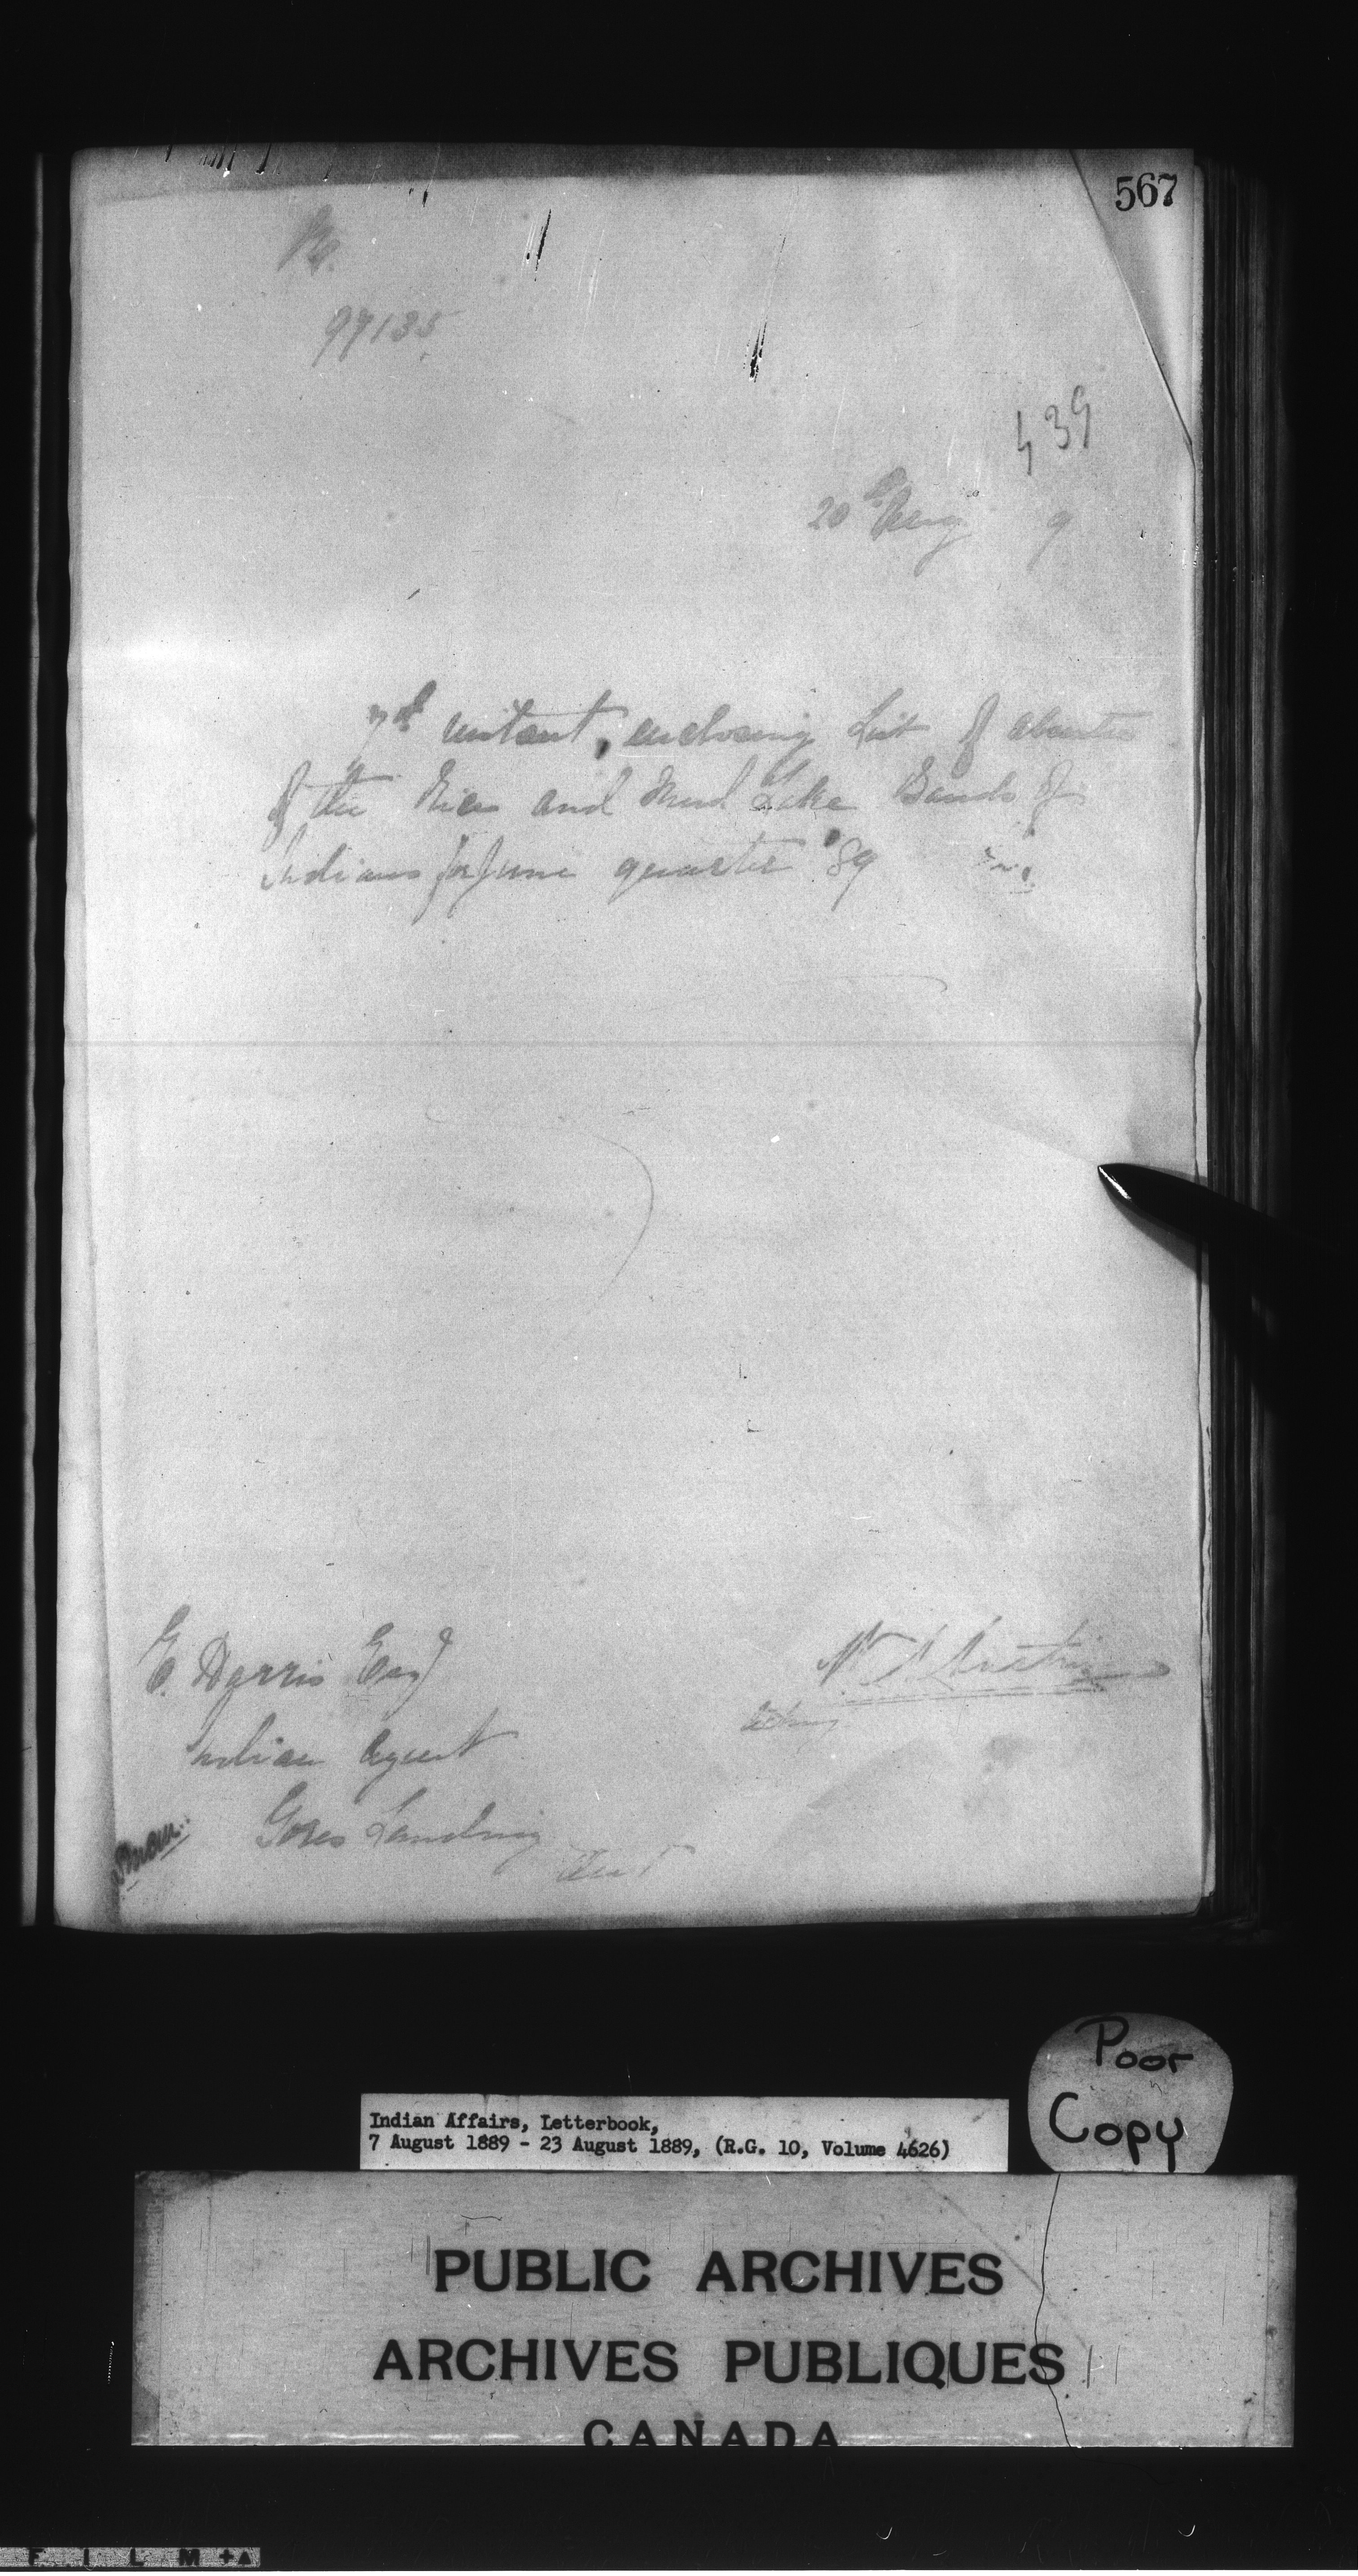 567
No.
97135
439
20th Aug 9
7th instant, enclosing List of absentees
of the Rice and Mud Lake Bands of
Indians for June quarter '89
E. Harris Esq
Indian Agent
Gores Landing
Ont
Acting
Poor
Copy
Indian Affairs, Letterbook,
7 August 1889 - 23 August 1889, (R.G. 10, Volume 4626)
PUBLIC ARCHIVES
ARCHIVES PUBLIQUES
CANADA
F I L M